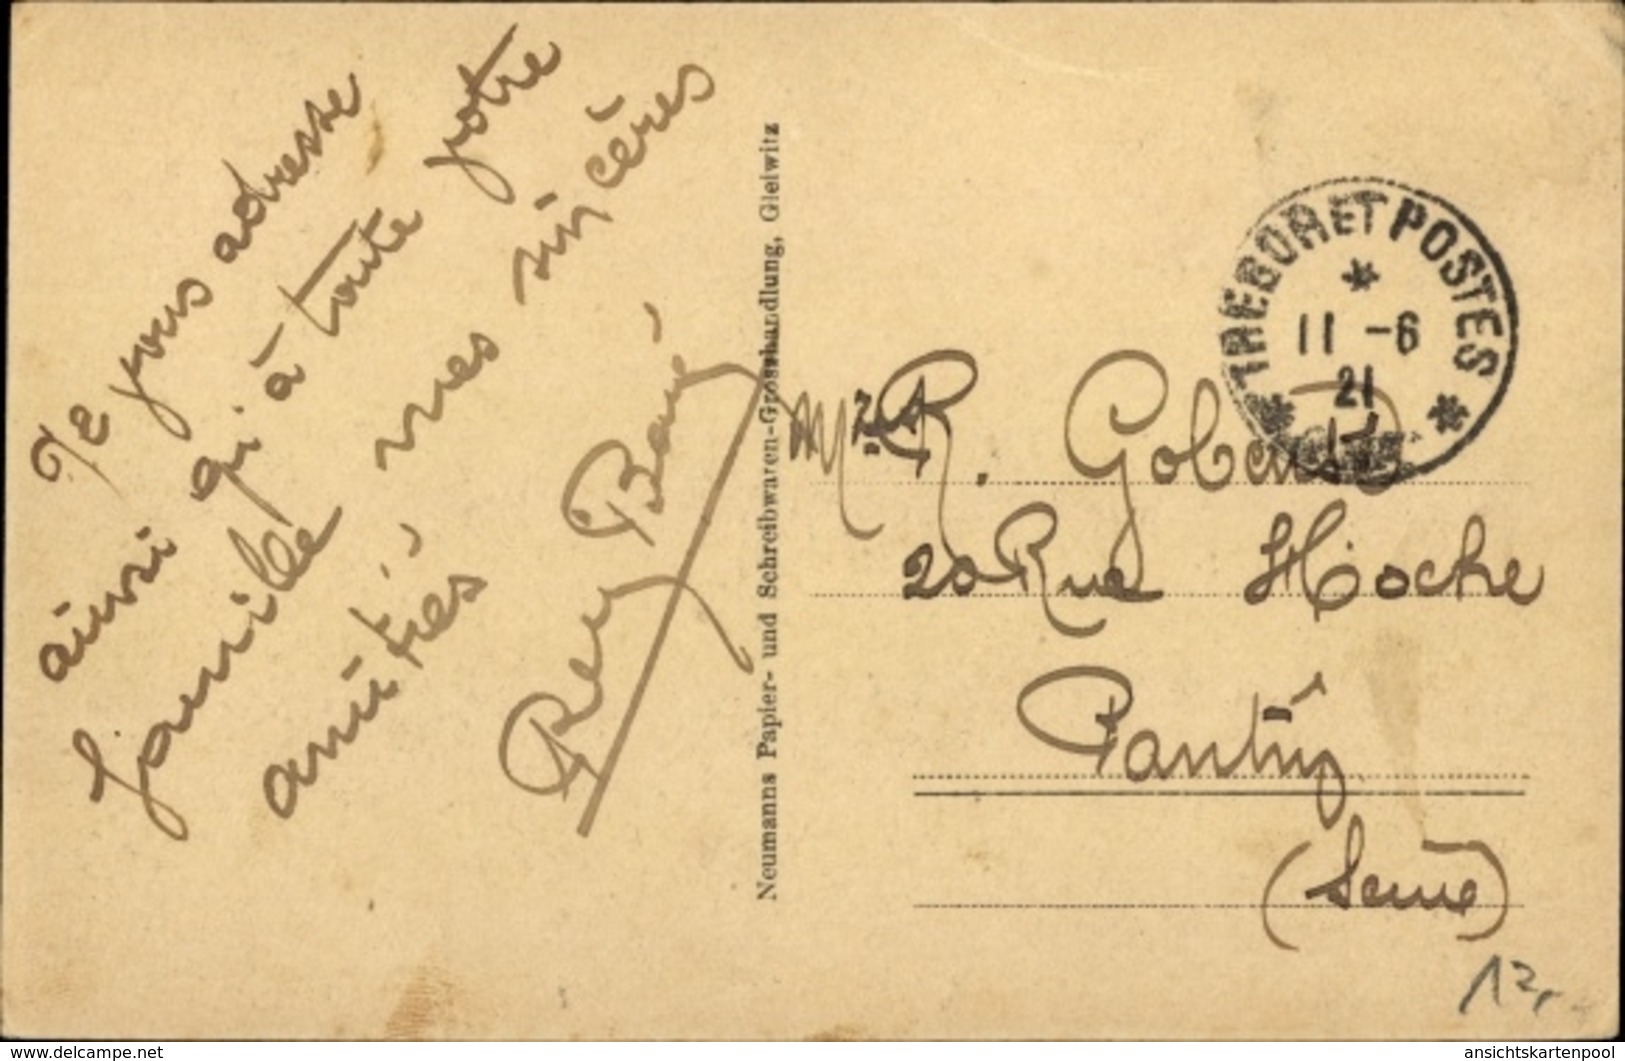 Je vous adresse
ainsi qu'à toute votre
famille mes sincères
amitiés
Neumanns Papier- und Schreibwaren-Grosshandlung, Gleiwitz
TRESOR ET POSTES
11 -6
21
Mr R. Gobard
20 Rue Hoche
Pantin
(Seine)
12,-
delcampe.net
ansichtskartenpool